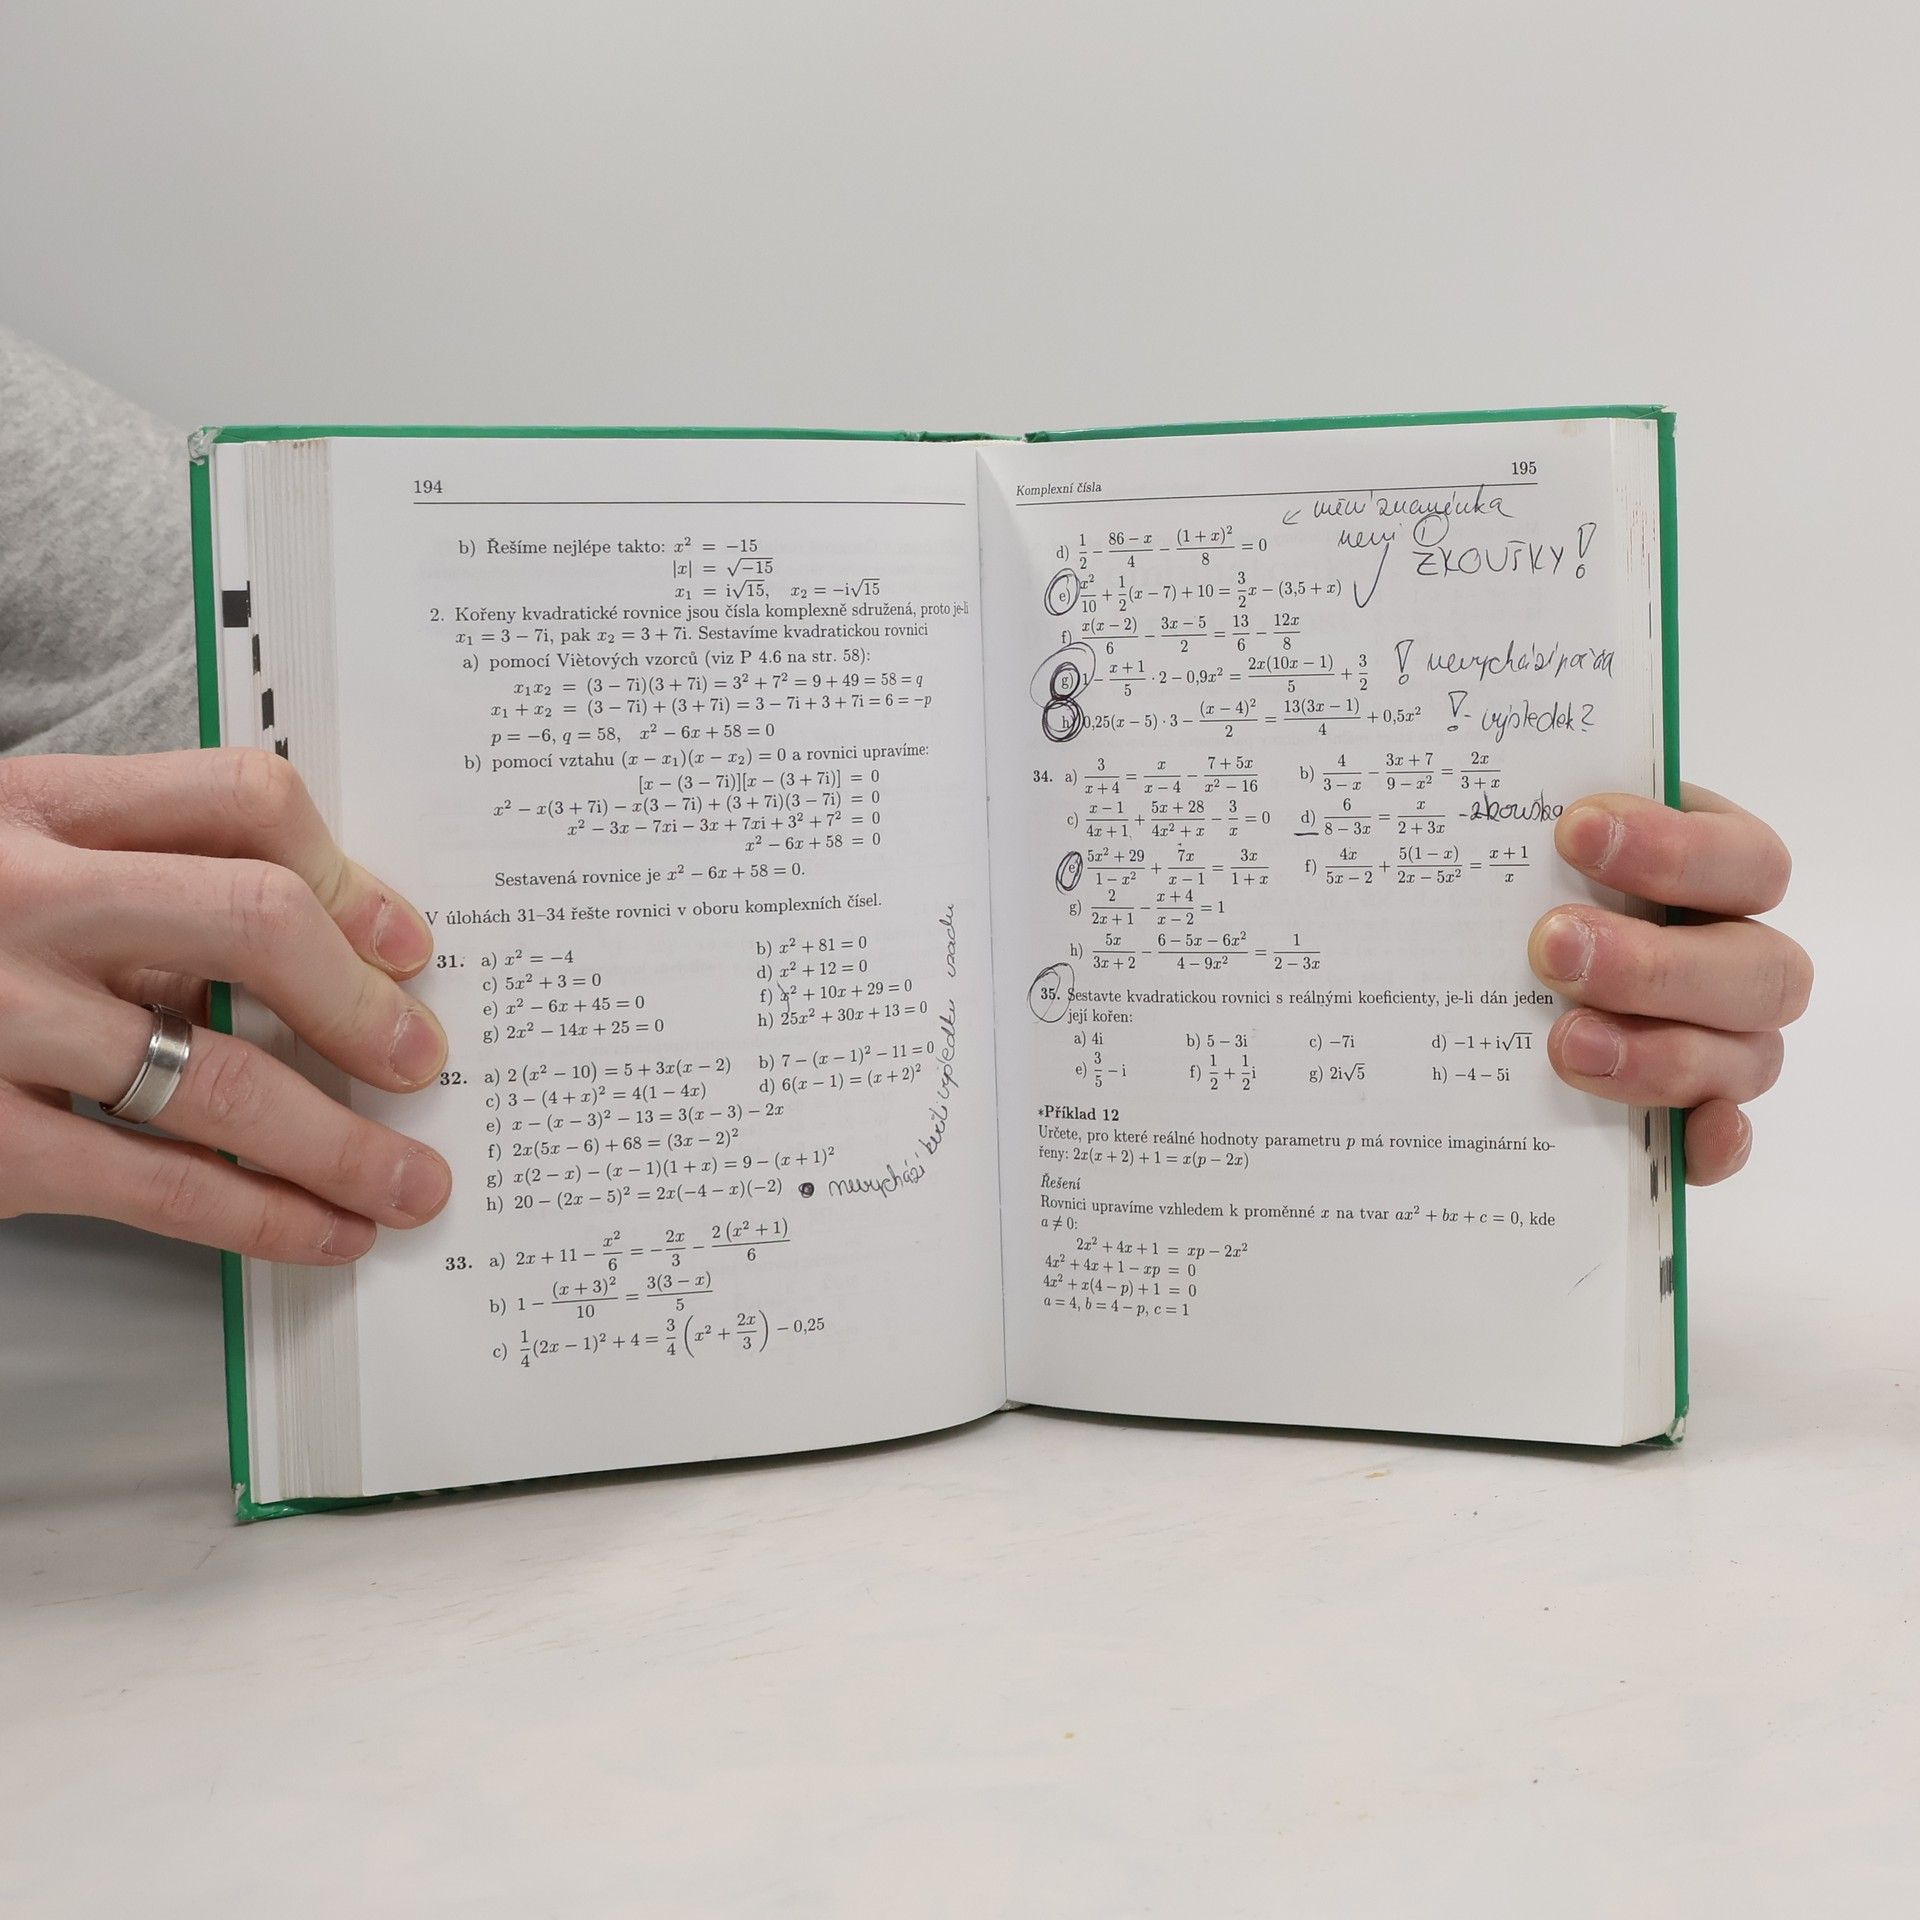 194
b) Řešíme nejlépe takto: x² = −15
|x| = √−15
x₁ = i√15, x₂ = −i√15
2. Kořeny kvadratické rovnice jsou čísla komplexně sdružená, proto je-li
x₁ = 3 − 7i, pak x₂ = 3 + 7i. Sestavíme kvadratickou rovnici
a) pomocí Viètových vzorců (viz P 4.6 na str. 58):
x₁x₂ = (3 − 7i)(3 + 7i) = 3² + 7² = 9 + 49 = 58 = q
x₁ + x₂ = (3 − 7i) + (3 + 7i) = 3 − 7i + 3 + 7i = 6 = −p
p = −6, q = 58, x² − 6x + 58 = 0
b) pomocí vztahu (x − x₁)(x − x₂) = 0 a rovnici upravíme:
[x − (3 − 7i)][x − (3 + 7i)] = 0
x² − x(3 + 7i) − x(3 − 7i) + (3 + 7i)(3 − 7i) = 0
x² − 3x − 7xi − 3x + 7xi + 3² + 7² = 0
x² − 6x + 58 = 0
Sestavená rovnice je x² − 6x + 58 = 0.
V úlohách 31–34 řešte rovnici v oboru komplexních čísel.
31. a) x² = −4 b) x² + 81 = 0
c) 5x² + 3 = 0 d) x² + 12 = 0
e) x² − 6x + 45 = 0 f) x² + 10x + 29 = 0
g) 2x² − 14x + 25 = 0 h) 25x² + 30x + 13 = 0
32. a) 2 (x² − 10) = 5 + 3x(x − 2) b) 7 − (x − 1)² − 11 = 0
c) 3 − (4 + x)² = 4(1 − 4x) d) 6(x − 1) = (x + 2)²
e) x − (x − 3)² − 13 = 3(x − 3) − 2x
f) 2x(5x − 6) + 68 = (3x − 2)²
g) x(2 − x) − (x − 1)(1 + x) = 9 − (x + 1)²
h) 20 − (2x − 5)² = 2x(−4 − x)(−2) nevychází kvůli výsledku vzadu
33. a) 2x + 11 − x²/6 = −2x/3 − 2 (x² + 1)/6
b) 1 − (x + 3)²/10 = 3(3 − x)/5
c) 1/4(2x − 1)² + 4 = 3/4 (x² + 2x/3) − 0,25
Komplexní čísla 195
← mění znaménka
není i
ZKOUŠKY!
d) 1/2 − 86 − x/4 − (1 + x)²/8 = 0
e) x²/10 + 1/2(x − 7) + 10 = 3/2x − (3,5 + x) ✓
f) x(x − 2)/6 − 3x − 5/2 = 13/6 − 12x/8
g) 1 − x + 1/5 · 2 − 0,9x² = 2x(10x − 1)/5 + 3/2 ! nevychází
h) 0,25(x − 5) · 3 − (x − 4)²/2 = 13(3x − 1)/4 + 0,5x² ! - výsledek?
34. a) 3/x + 4 = x/x − 4 − 7 + 5x/x² − 16 b) 4/3 − x − 3x + 7/9 − x² = 2x/3 + x
c) x − 1/4x + 1 + 5x + 28/4x² + x − 3/x = 0 d) 6/8 − 3x = x/2 + 3x - zkouška
e) 5x² + 29/1 − x² + 7x/x − 1 = 3x/1 + x f) 4x/5x − 2 + 5(1 − x)/2x − 5x² = x + 1/x
g) 2/2x + 1 − x + 4/x − 2 = 1
h) 5x/3x + 2 − 6 − 5x − 6x²/4 − 9x² = 1/2 − 3x
35. Sestavte kvadratickou rovnici s reálnými koeficienty, je-li dán jeden
její kořen:
a) 4i b) 5 − 3i c) −7i d) −1 + i√11
e) 3/5 − i f) 1/2 + 1/2i g) 2i√5 h) −4 − 5i
*Příklad 12
Určete, pro které reálné hodnoty parametru p má rovnice imaginární ko-
řeny: 2x(x + 2) + 1 = x(p − 2x)
Řešení
Rovnici upravíme vzhledem k proměnné x na tvar ax² + bx + c = 0, kde
a ≠ 0:
2x² + 4x + 1 = xp − 2x²
4x² + 4x + 1 − xp = 0
4x² + x(4 − p) + 1 = 0
a = 4, b = 4 − p, c = 1